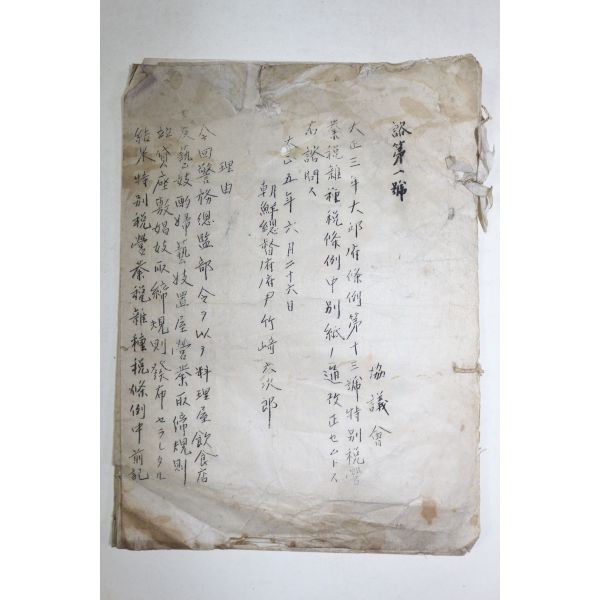 諮第一號
協議會
大正三年大邱府條例第十三號特別稅營
業稅雜種稅條例中別紙ノ通改正セムトス
右諮問ス
大正五年六月二十六日
朝鮮總督府府尹竹崎六次郎
理由
今回警務總監部令ヲ以テ料理屋飲食店
及藝妓酌婦藝妓置屋營業取締規則
貸座敷娼妓取締規則發布セラレタル
結果特別稅營業稅雜種稅條例中前記